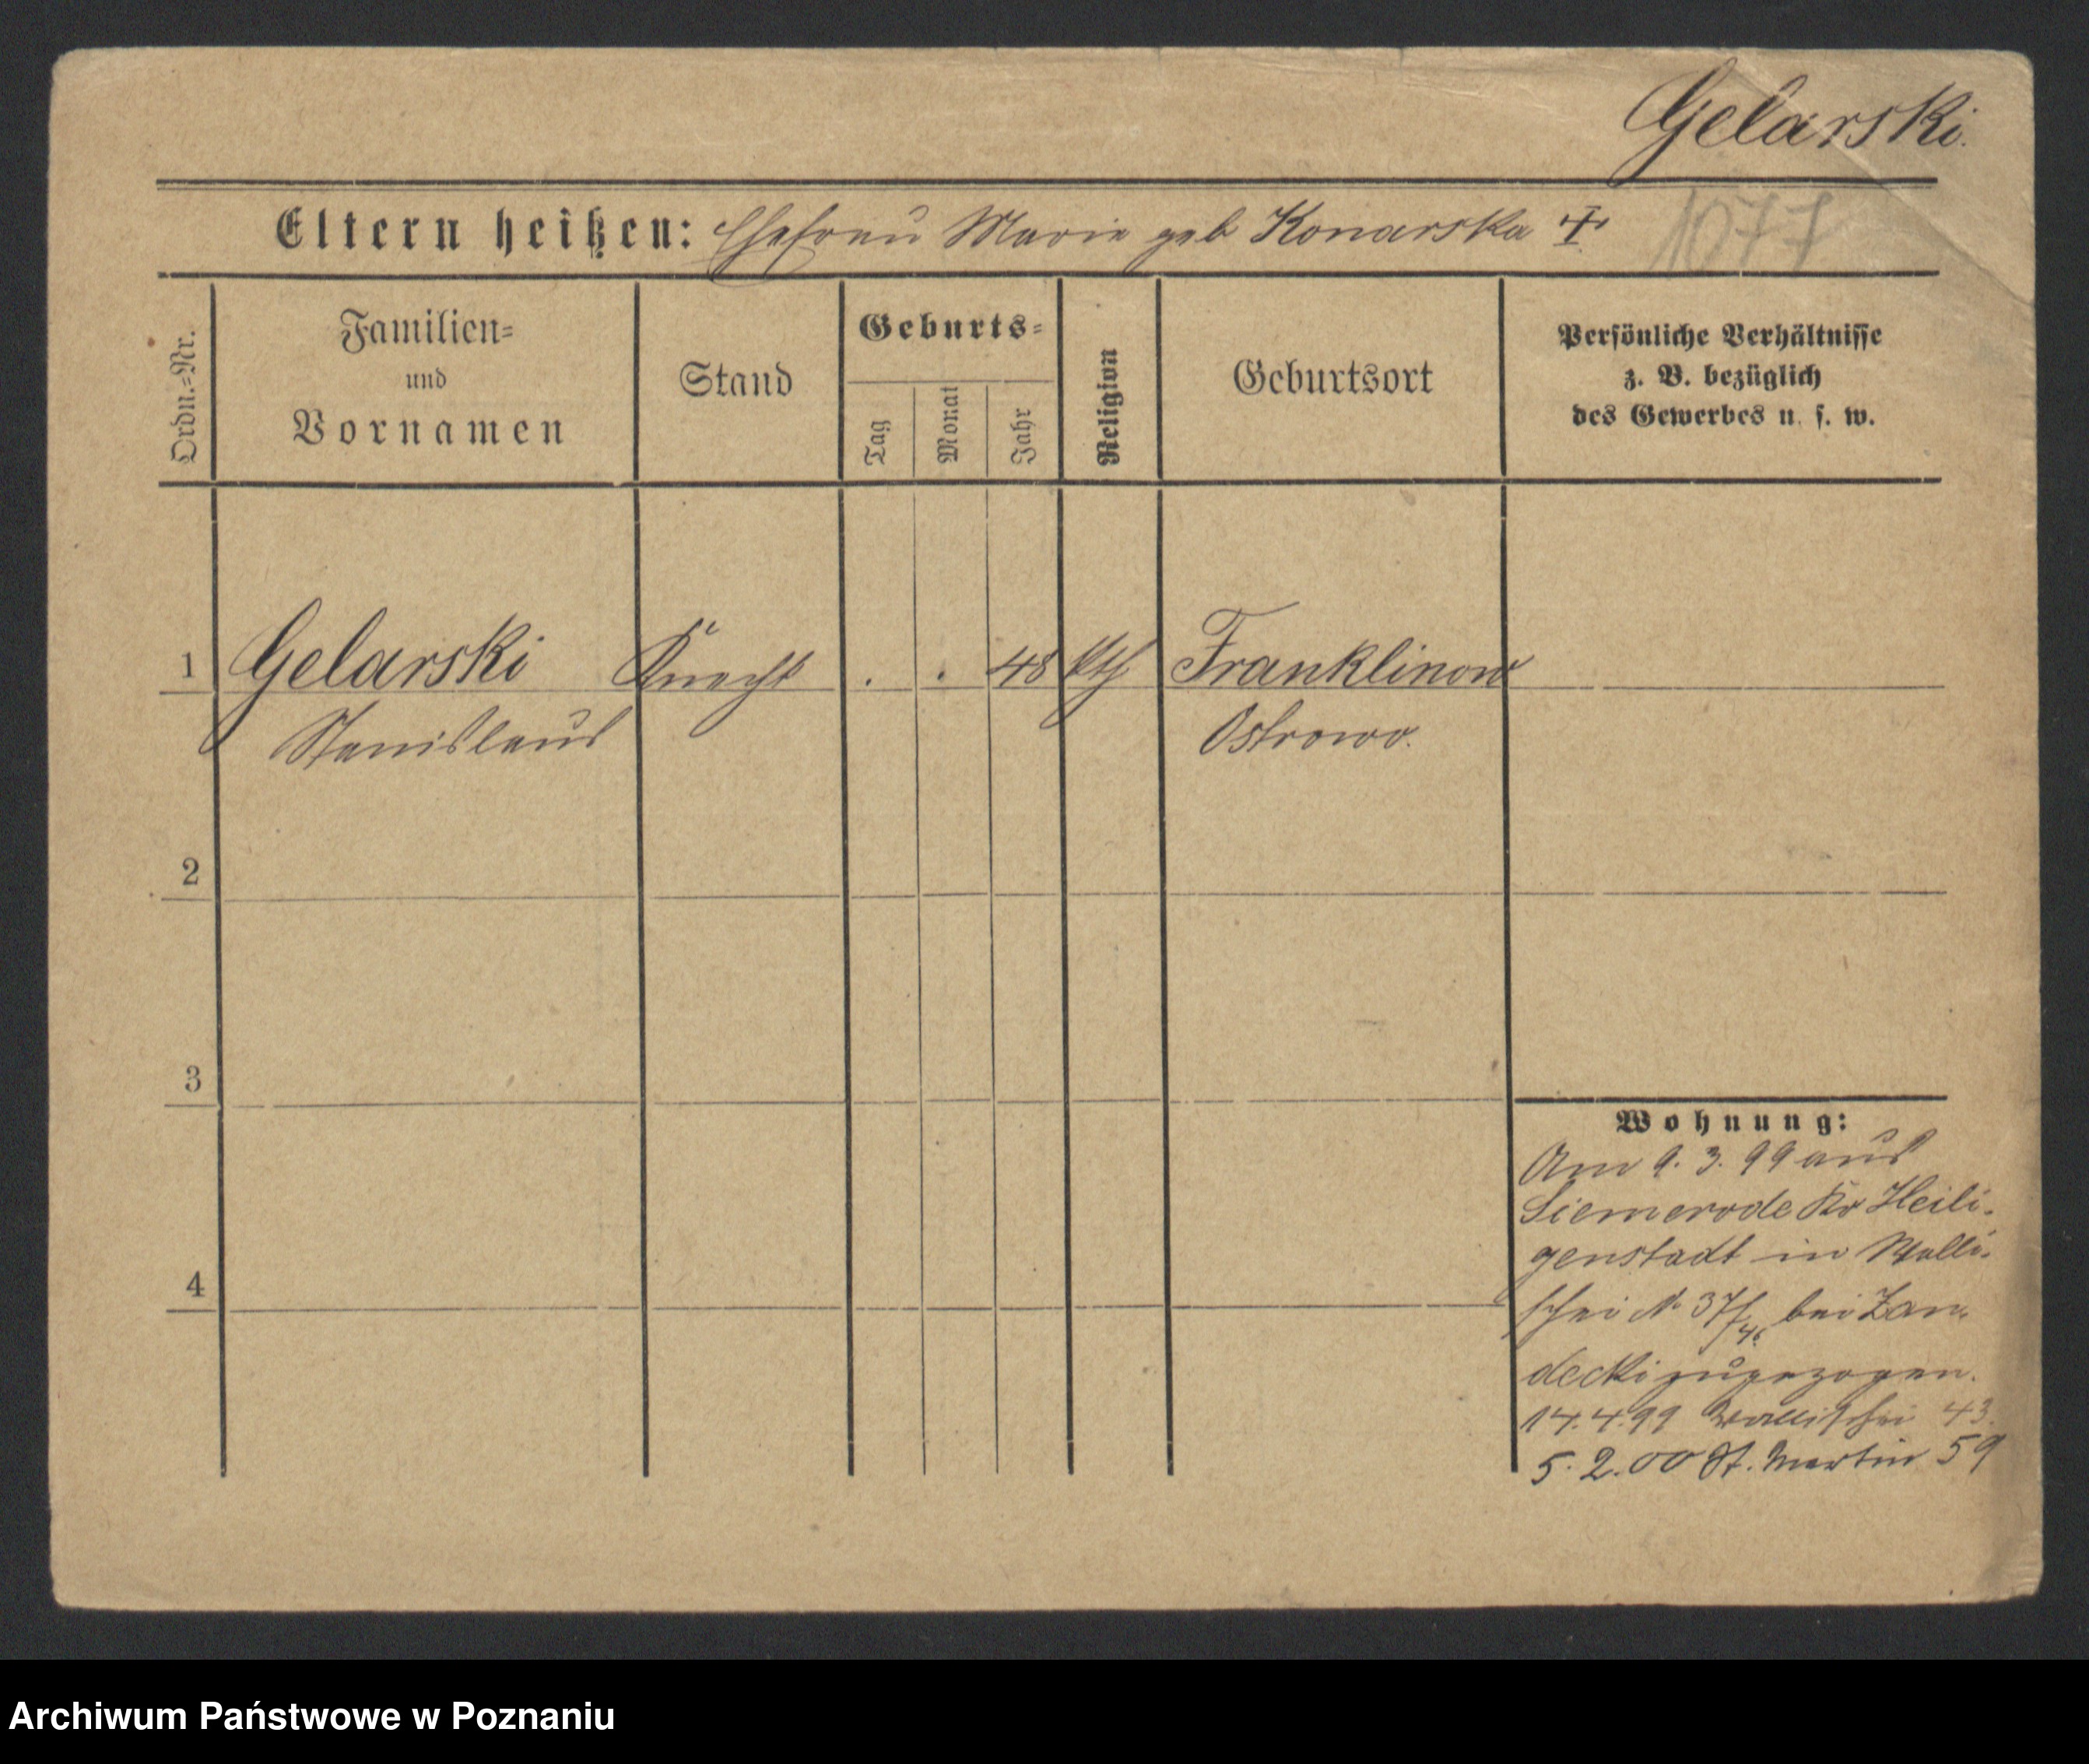 Gelarski.
Eltern heißen: Ehefrau Marie geb Konarska ✝
1077
Ordn.=Nr.
Familien=
und
Vornamen
Stand
Geburts=
Tag
Monat
Jahr
Religion
Geburtsort
Persönliche Verhältnisse
z. B. bezüglich
des Gewerbes u. s. w.
1 Gelarski Knecht . . 48 kth Franklinow
Stanislaus Ostrowo.
2
3
4
Wohnung:
Am 9. 3. 99 aus
Siemerode Kr Heili-
genstadt in Walli-
schei № 37/46 bei Zan-
decki zugezogen.
14.4.99 Wallischei 43.
5. 2. 00 St. Martin 59
Archiwum Państwowe w Poznaniu